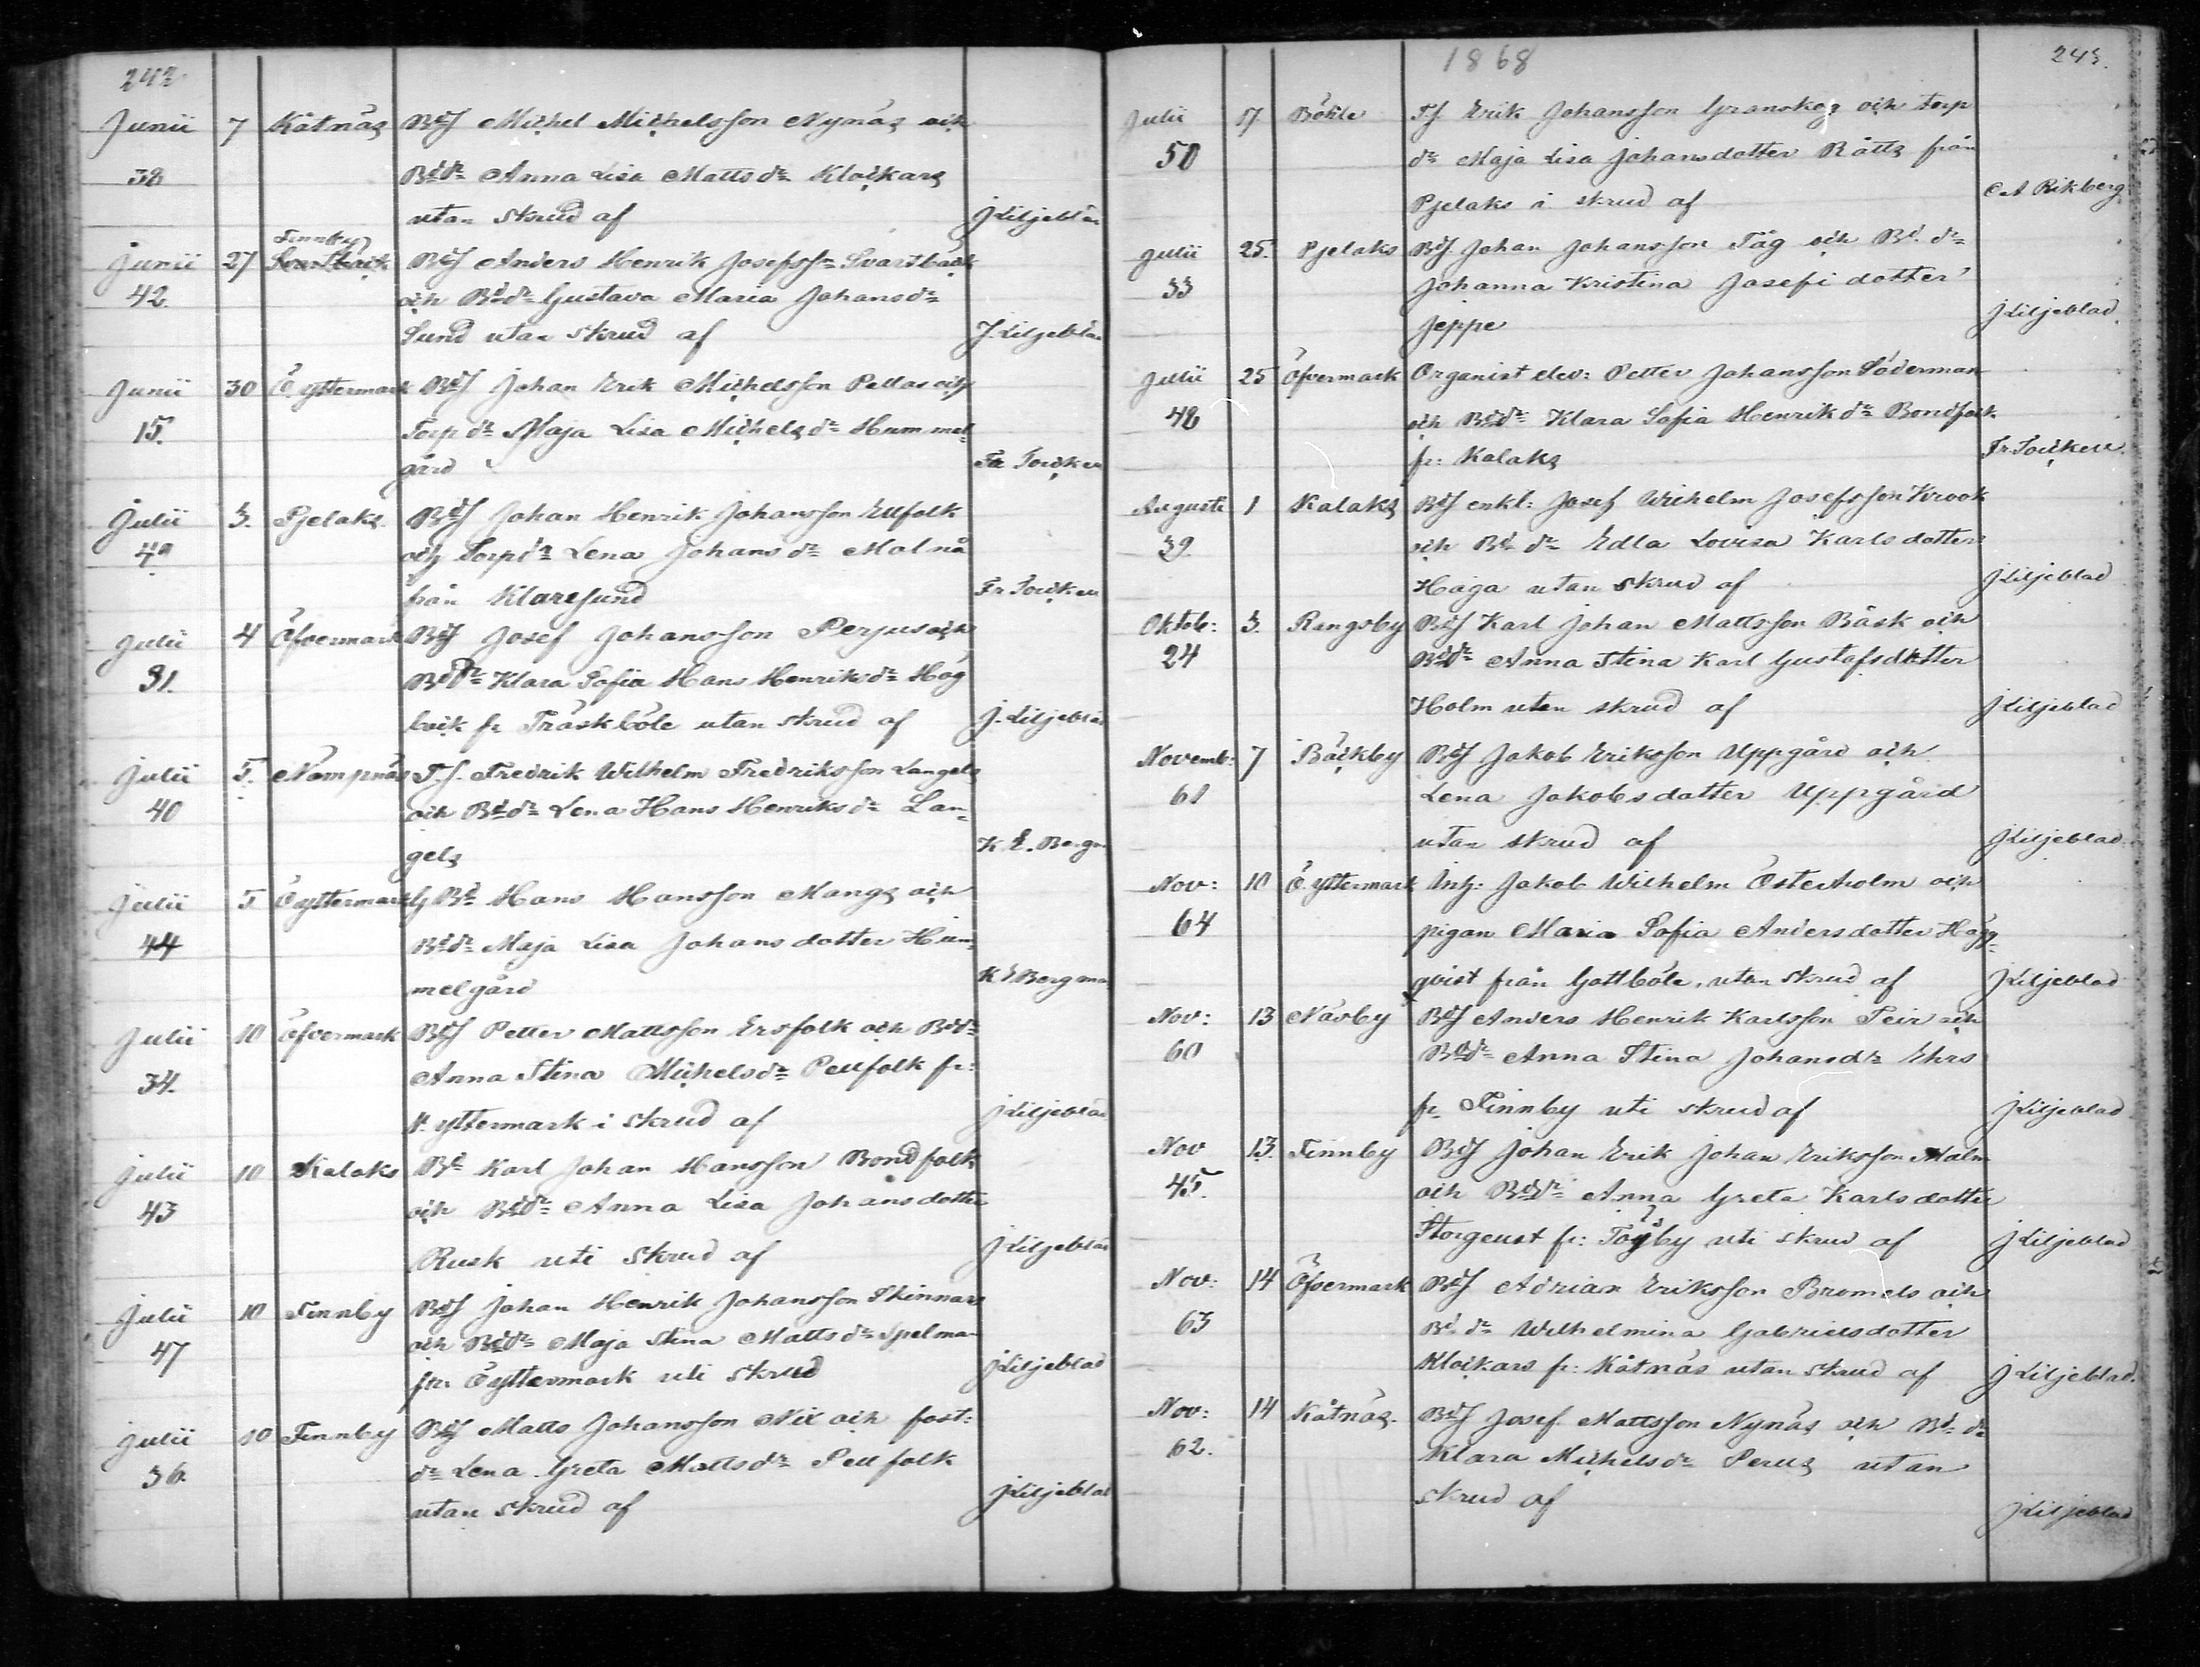 242
Junii 7 Kåtnäs BdS Michel Michelsson Nynäs och
38 Bddr Anna Lisa Mattsdr Klockars
utan skrud af J Liljeblad
Finnby
Junii 27 Svartbäck BdS Anders Henrik Josefssn Svartbäck
42. och Bddr Gustava Maria Johansdr
Sund utan skrud af J. Liljeblad
Junii 30 Ö. yttermark BdS Johan Erik Michelsson Pellas och
15. Torp dr Maja Lisa Michelsdr Hummel-
gård Fr Toicken
Julii 3. Pjelaks. BdS Johan Henrik Johansson Ellfolk
49 och Torpdr Lena Johansdr Molnå
från Klaresund Fr Toicken
Julii 4 Öfvermark BdS Josef Johansson Perjus och
31. Bddr Klara Sofia Hans Henriksdr Hög
back fr Träskböle utan skrud af J. Liljeblad
Julii 5. Nämpnäs T.S. Fredrik Wilhelm Fredriksson Langels
40 och Bddr Lena Hans Henriksdr Lan-
gels K E. Bergm
Julii 5 Ö yttermark G Bd Hans Hansson Mangs och
44 Bddr Maja Lisa Johansdotter Hum-
melgård K E Bergman
Julii 10 Öfvermark BdS Petter Mattsson Ersfolk och Bddr
34. Anna Stina Michelsdr Pellfolk fr:
N. yttermark i skrud af J Liljeblad
Julii 10 Kalaks Bd Karl Johan Hansson Bondfolk
43 och Bddr Anna Lisa Johansdotter
Rusk uti skrud af J Liljeblad
Julii 10 Finnby BdS Johan Henrik Johansson Skinnars
47 och Bddr Maja Stina Mattsdr Spelman
fr. Ö yttermark uti skrud J Liljeblad
Julii 10 Finnby BdS Matts Johansson Nix och fost:
36. dr Lena Greta Mattsdr Pellfolk
utan skrud af J Liljeblad
1868 243.
Julii 17 Böhle TS. Erik Johansson Granskog och torp
50 dr Maja Lisa Johansdotter Rätts från
Pjelaks i skrud af C A Rikberg
Julii 25. Pjelaks BdS. Johan Johansson Tåg och Bd. dr
33 Johanna Kristina Josefs dotter
Jeppe J Liljeblad
Julii 25 Öfvermark Organist elev: Petter Johansson Söderman
48 och Bddr Klara Sofia Henriksdr Bondfolk
fr: Kalaks Fr. Toicken
Augusti 1 Kalaks BdS enkl: Josef Wilhelm Josefsson Krook
39. och Bd dr Edla Lovisa Karlsdotter
Haga utan skrud af J Liljeblad
Oktob: 3. Rangsby BdS Karl Johan Mattsson Bäck och
24 Bddr Anna Stina Karl Gustafsdotter
Holm utan skrud af J Liljeblad
Novemb: 7 Bäckby BdS Jakob Eriksson Uppgård och
61 Lena Jakobsdotter Uppgård
utan skrud af J Liljeblad
Nov: 10 Ö. yttermark Inh: Jakob Wilhelm Österholm och
64 pigan Maria Sofia Andersdotter Hägg-
qvist från Gottböle, utan skrud af J Liljeblad
Nov: 13 Näsby BdS Anders Henrik Karlsson Teir och
60 Bddr Anna Stina Johansdr Ehrs
fr. Finnby uti skrud af J Liljeblad
Nov 13. Finnby BdS Johan Erik Johan Eriksson Malm
45. och Bddr Anna Greta Karlsdotter
Storgeust fr: Töjby uti skrud af J Liljeblad
Nov: 14 Öfvermark BdS Adrian Eriksson Bromels och
63 Bd dr Wilhelmina Gabrielsdotter
Klockars fr: Kåtnäs utan skrud af J Liljeblad.
Nov: 14 Kåtnäs. BdS Josef Mattsson Nynäs och Bd. dr
62. Klara Michelsdr Perus utan
skrud af J Liljeblad